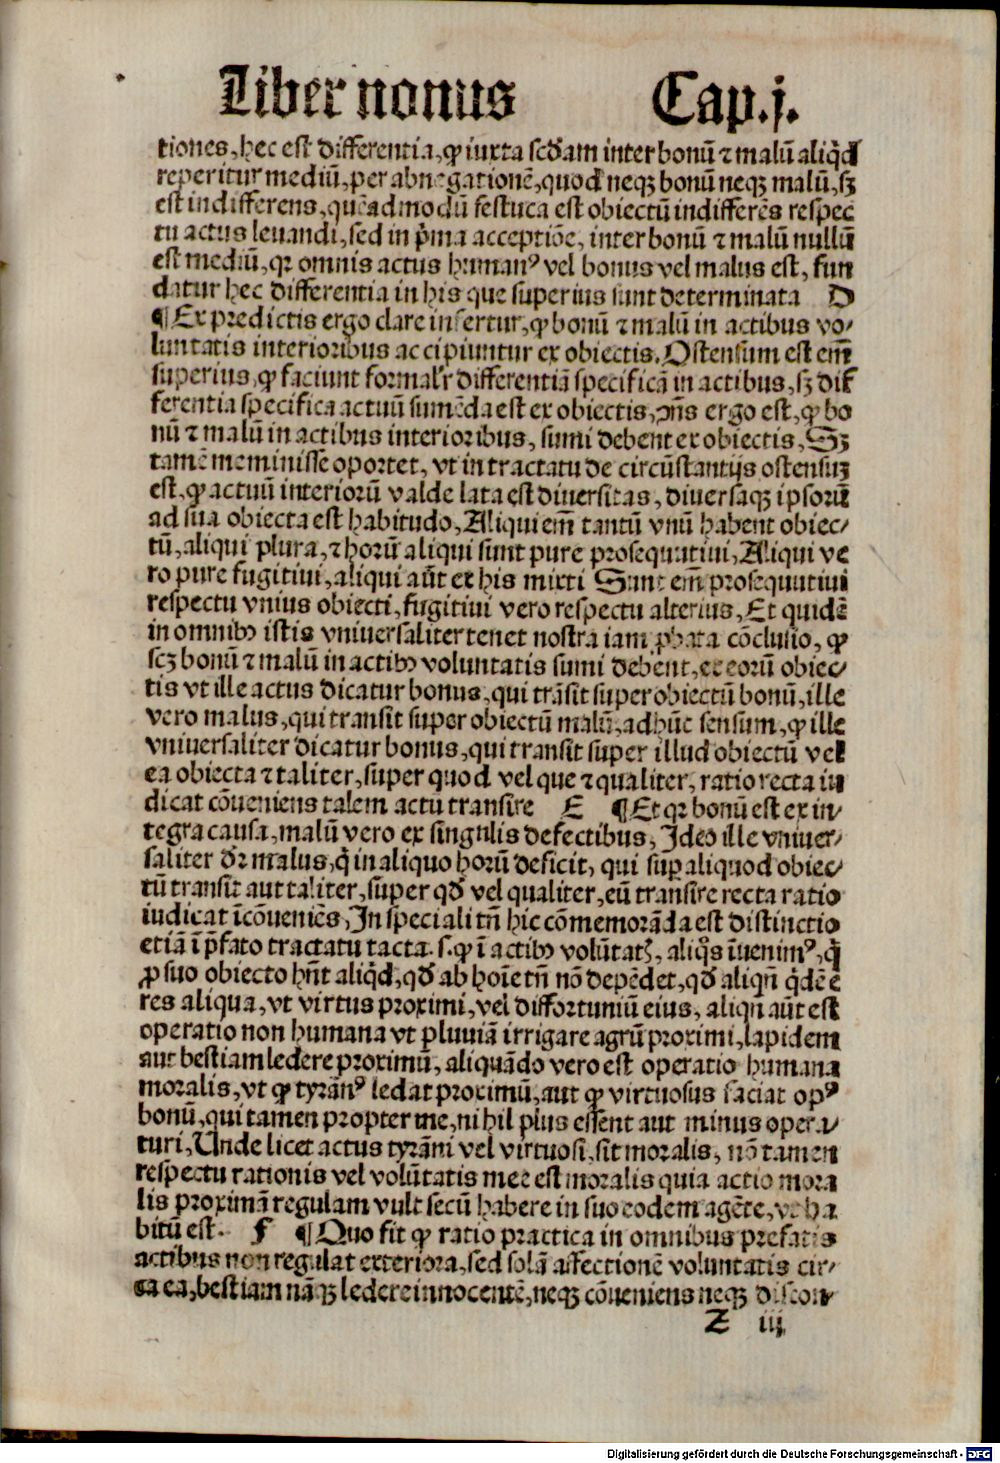 Liber nonus Cap.j.
tiones, hec est differentia, ꝙ iuxta scḋam inter bonū ⁊ malū aliqḋ
reperitur mediū, per abnegationē, quod neqꝫ bonū neqꝫ malū, sꝫ
est indifferens, quēadmodū festuca est obiectū indifferēs respec
tu actus leuandi, sed in pͥma acceptiōe, inter bonū ⁊ malū nullū
est mediū, qꝛ omnis actus humanꝰ vel bonus vel malus est, fun
datur hec differentia in his que superius sunt determinata D
¶Ex predictis ergo clare infertur, ꝙ bonū ⁊ malū in actibus vo⸗
luntatis interioribus accipiuntur ex obiectis. Ostensum est em̄
superius, ꝙ faciunt formalʳr differentiā specificā in actibus, sꝫ dif
ferentia specifica actuū sumēda est ex obiectis, ꝯn̄s ergo est, ꝙ bo
nū ⁊ malū in actibus interioribus, sumi debent ex obiectis, Sꝫ
tamē meminisse oportet, vt in tractatu de circūstantijs ostensuꝫ
est, ꝙ actuū interiorū valde lata est diuersitas, diuersaqꝫ ipsorū
ad sua obiecta est habitudo, Aliqui em̄ tantū vnū habent obiec⸗
tū, aliqui plura, ⁊ horū aliqui sunt pure prosequutiui, Aliqui ve
ro pure fugitiui, aliqui aūt ex his mixti Sunt em̄ prosequutiui
respectu vnius obiecti, fugitiui vero respectu alterius, Et quidē
in omnibꝰ istis vniuersaliter tenet nostra iam ꝓbata cōclusio, ꝙ
scꝫ bonū ⁊ malū in actibꝰ voluntatis sumi debent, ex eorū obiec⸗
tis vt ille actus dicatur bonus, qui trāsit super obiectū bonū, ille
vero malus, qui transit super obiectū malū, ad hūc sensum, ꝙ ille
vniuersaliter dicatur bonus, qui transit super illud obiectū vel
ea obiecta ⁊ taliter, super quod vel que ⁊ qualiter, ratio recta iu
dicat cōueniens talem actū transire E ¶Et qꝛ bonū est ex in⸗
tegra causa, malū vero ex singulis defectibus, Ideo ille vniuer⸗
saliter dꝛ malus, qͥ in aliquo horū deficit, qui suꝑ aliquod obiec⸗
tū transit aut taliter, super qḋ vel qualiter, eū transire recta ratio
iudicat īcōueniēs, In speciali tn̄ hic cōmemorāda est distinctio
etiā ī p̄fato tractatu tacta. s. ꝙ ī actibꝰ volūtatꝭ, aliqͦs īuenimꝰ, qͥ
ꝓ suo obiecto hn̄t aliqḋ, qḋ ab hoīe tn̄ nō depēdet, qḋ aliqn̄ qͥdē ē
res aliqua, vt virtus proximi, vel diffortuniū eius, aliqn̄ aūt est
operatio non humana vt pluuiā irrigare agrū proximi, lapidem
aut bestiam ledere proximū, aliquādo vero est operatio humana
moralis, vt ꝙ tyrānꝰ ledat proximū, aut ꝙ virtuosus faciat opꝰ
bonū, qui tamen propter me, nihil plus essent aut minus opera⸗
turi, Unde licet actus tyrāni vel virtuosi, sit moralis, nō tamen
respectu rationis vel volūtatis mee est moralis quia actio mora
lis proximā regulam vult secū habere in suo eodem agēte, vt ha
bitū est. F ¶Quo fit ꝙ ratio practica in omnibus prefatis
actibus non regulat exteriora, sed solā affectionē voluntatis cir⸗
ca ea, bestiam nāqꝫ ledere innocentē, neqꝫ cōueniens neqꝫ discon⸗
Z iij
Digitalisierung gefördert durch die Deutsche Forschungsgemeinschaft - DFG